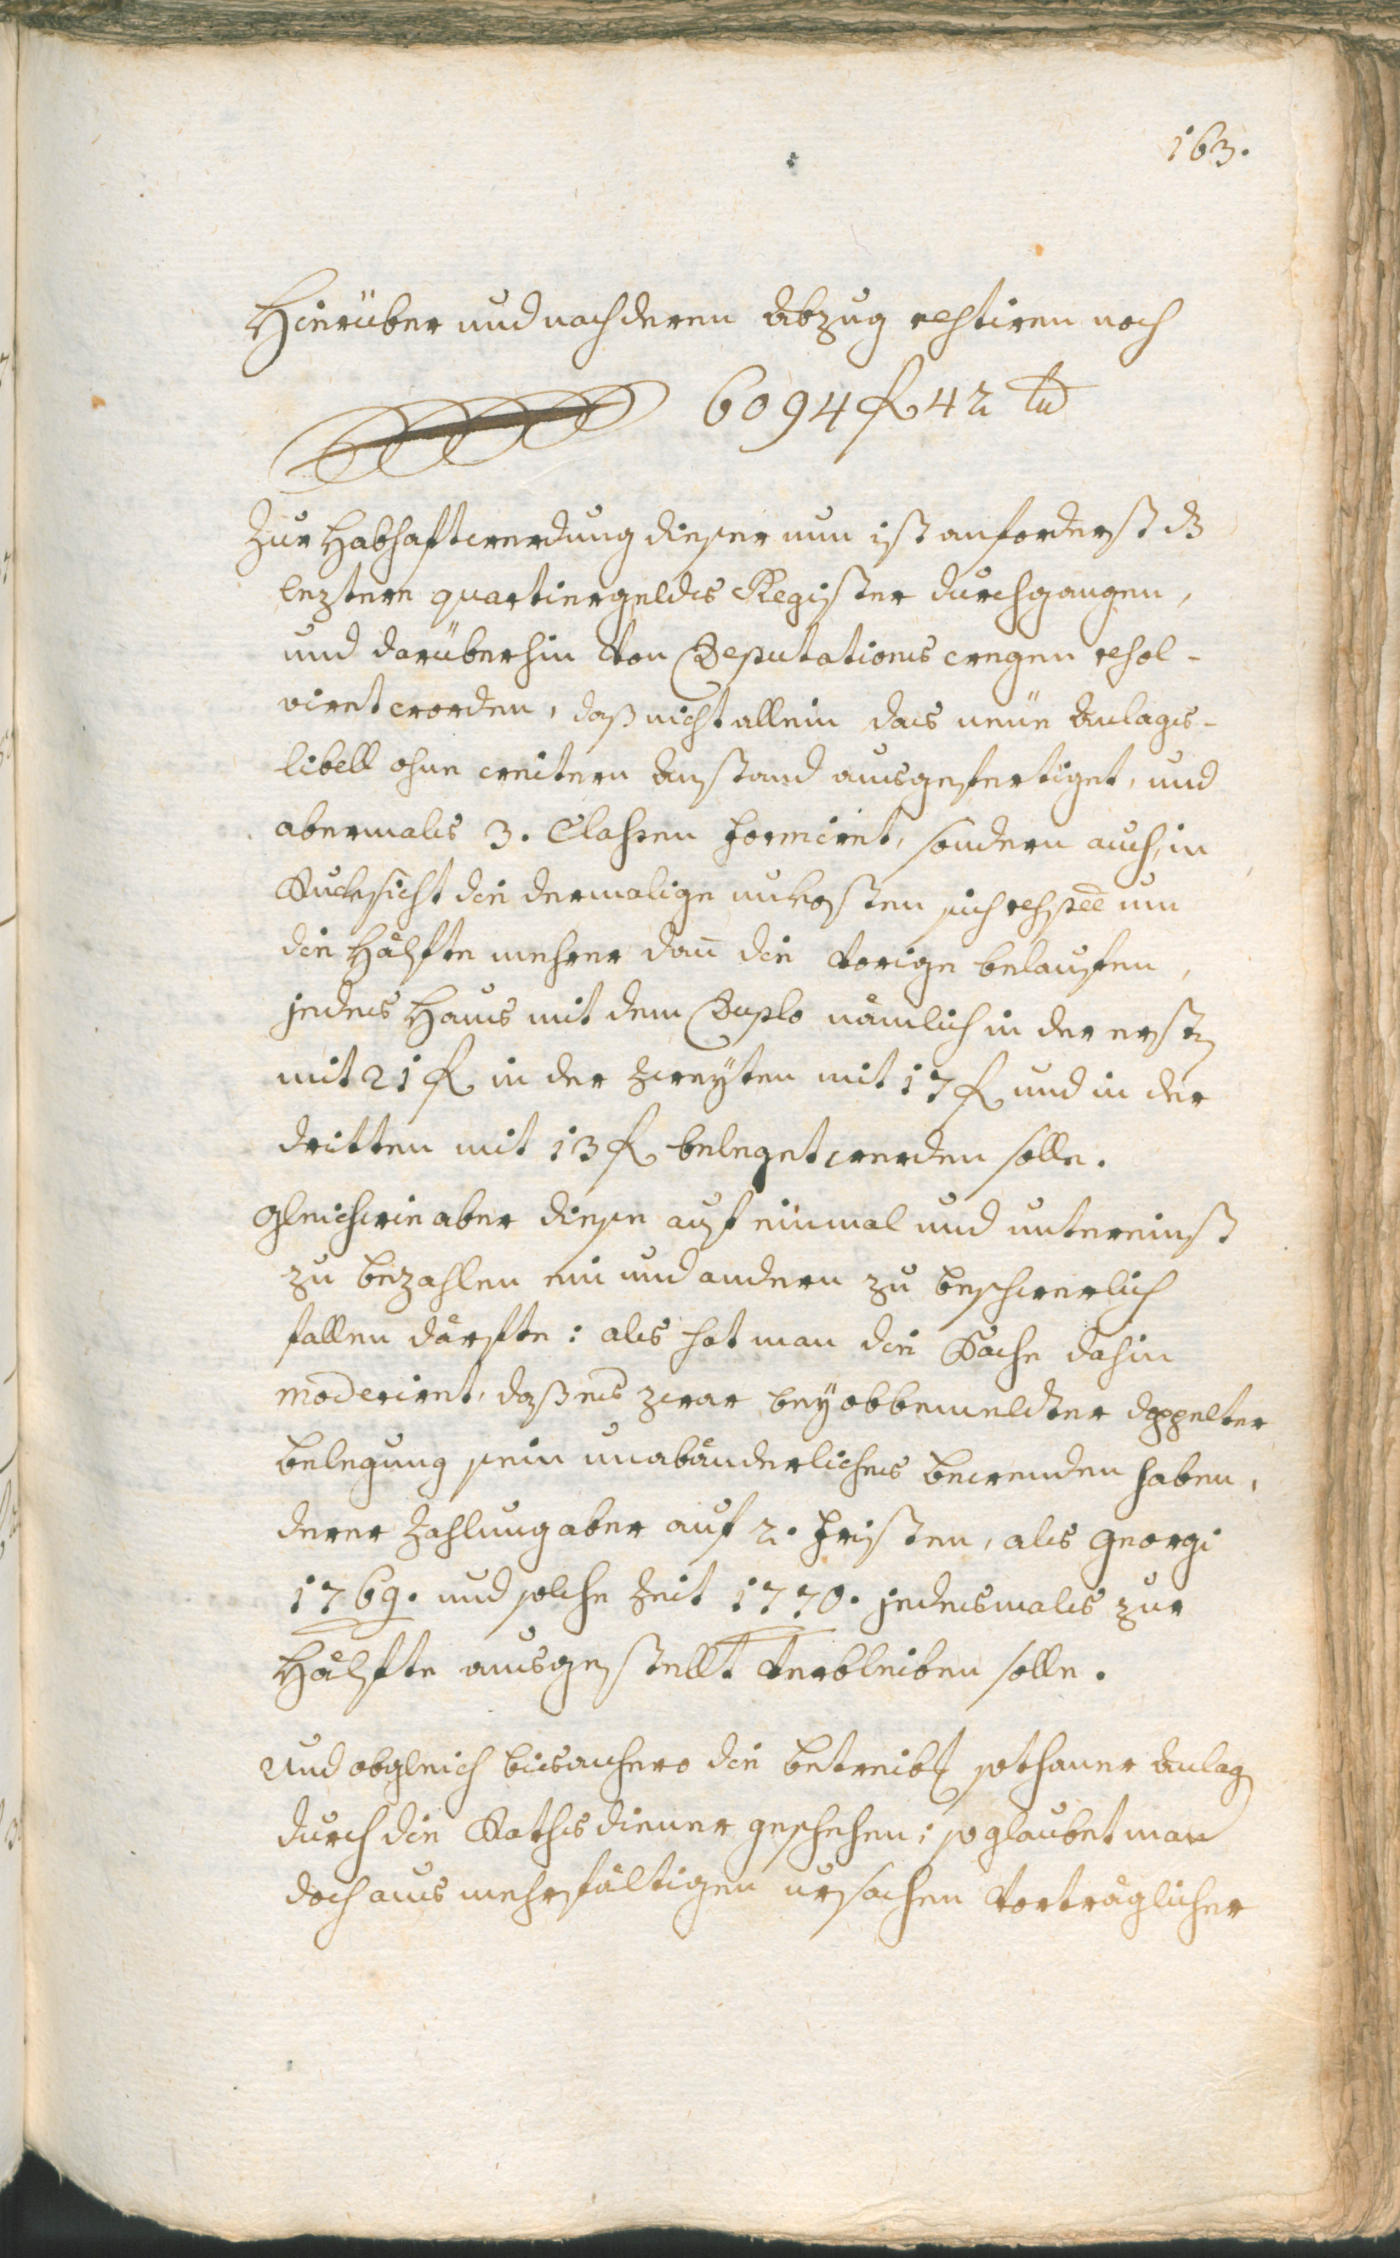 163.
Hierüber und nach deren Abzug restiren noch
6094 f 42 kr
Zur Habhaftwerdung dieser nun ist anforderst dz
leztere quartiergelds Register durchgangen,
und darüberhin von Deputations wegen resol-
viret worden, daß nicht allein das neüe Anlags-
libell ohne weitern Anstand ausgefertiget, und
abermals 3. Classen formiret, sondern auch, in
Rucksicht die dermalige unkosten sich respee um
die Hälfte mehrer dan̄ die vorige belaufen,
jedes Haus mit dem Duplo nämlich in der ersten
mit 21 f in der zweyten mit 17 f und in der
dritten mit 13 f beleget werden solle.
Gleichwie aber diese auf einmal und untereinst
zu bezahlen ein und andern zu beschwerlich
fallen dörfte: als hat man die Sache dahin
moderiret, daß es zwar bey obbemeldter doppelter
belegung sein unabänderliches bewenden haben,
derer Zahlung aber auf 2. fristen, als Georgi
1769. und solche Zeit 1770. jedesmals zur
Hälfte ausgestellt verbleiben solle.
Und obgleich bisanhero die betreibung sothaner Anlag
durch die Rathsdiener geschehen; so glaubet man
doch aus mehrfältigen ursachen vorträglicher